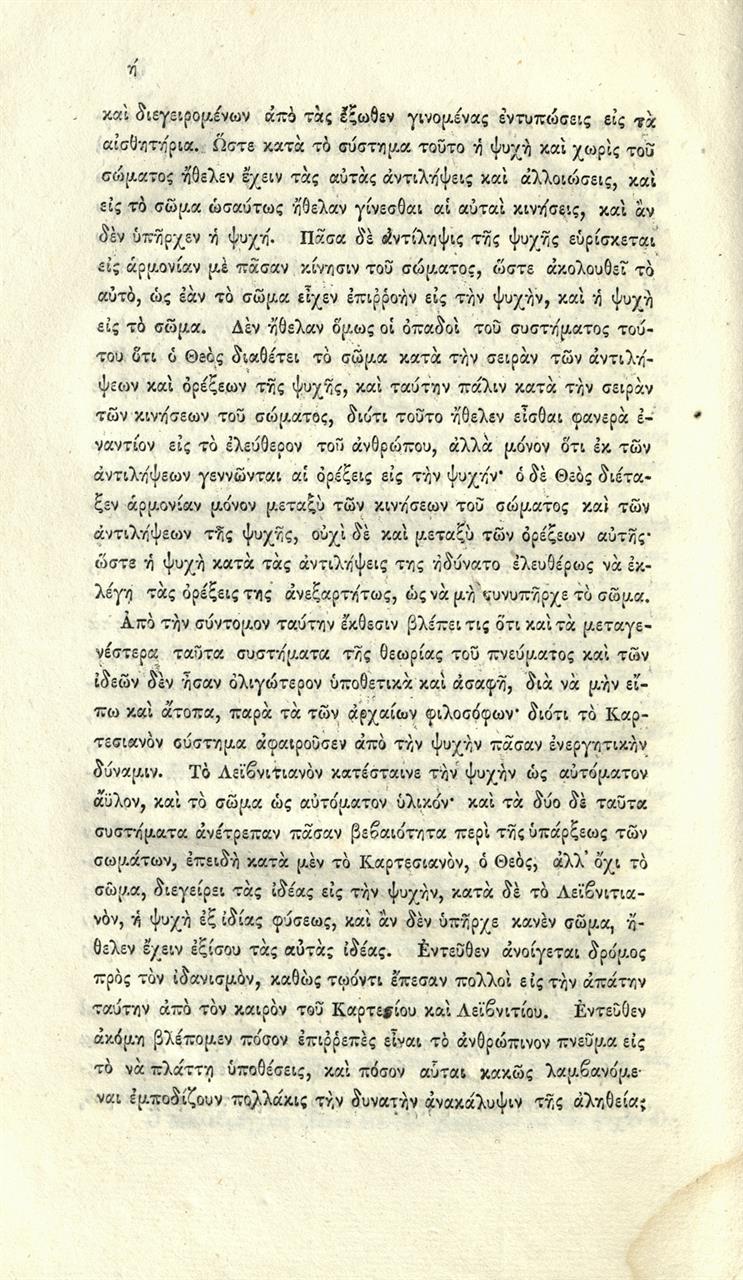 ή
καὶ διεγειρομένων ἀπὸ τὰς ἔξωθεν γινομένας ἐντυπώσεις εἰς τὰ
αἰσθητήρια. Ὥστε κατὰ τὸ σύστημα τοῦτο ἡ ψυχὴ καὶ χωρὶς τοῦ
σώματος ἤθελεν ἔχειν τὰς αὐτὰς ἀντιλήψεις καὶ ἀλλοιώσεις, καὶ
εἰς τὸ σῶμα ὡσαύτως ἤθελαν γίνεσθαι αἱ αὐταὶ κινήσεις, καὶ ἂν
δὲν ὑπῆρχεν ἡ ψυχή. Πᾶσα δὲ ἀντίληψις τῆς ψυχῆς εὑρίσκεται
εἰς ἁρμονίαν μὲ πᾶσαν κίνησιν τοῦ σώματος, ὥστε ἀκολουθεῖ τὸ
αὐτὸ, ὡς ἐὰν τὸ σῶμα εἶχεν ἐπιῤῥοὴν εἰς τὴν ψυχὴν, καὶ ἡ ψυχὴ
εἰς τὸ σῶμα. Δὲν ἤθελαν ὅμως οἱ ὀπαδοὶ τοῦ συστήματος τού-
του ὅτι ὁ Θεὸς διαθέτει τὸ σῶμα κατὰ τὴν σειρὰν τῶν ἀντιλή-
ψεων καὶ ὀρέξεων τῆς ψυχῆς, καὶ ταύτην πάλιν κατὰ τὴν σειρὰν
τῶν κινήσεων τοῦ σώματος, διότι τοῦτο ἤθελεν εἶσθαι φανερὰ ἐ-
ναντίον εἰς τὸ ἐλεύθερον τοῦ ἀνθρώπου, ἀλλὰ μόνον ὅτι ἐκ τῶν
ἀντιλήψεων γεννῶνται αἱ ὀρέξεις εἰς τὴν ψυχήν· ὁ δὲ Θεὸς διέτα-
ξεν ἁρμονίαν μόνον μεταξὺ τῶν κινήσεων τοῦ σώματος καὶ τῶν
ἀντιλήψεων τῆς ψυχῆς, οὐχὶ δὲ καὶ μεταξὺ τῶν ὀρέξεων αὐτῆς·
ὥστε ἡ ψυχὴ κατὰ τὰς ἀντιλήψεις της ἠδύνατο ἐλευθέρως νὰ ἐκ-
λέγῃ τὰς ὀρέξεις της ἀνεξαρτήτως, ὡς νὰ μὴ συνυπῆρχε τὸ σῶμα.
Ἀπὸ τὴν σύντομον ταύτην ἔκθεσιν βλέπει τις ὅτι καὶ τὰ μεταγε-
νέστερα ταῦτα συστήματα τῆς θεωρίας τοῦ πνεύματος καὶ τῶν
ἰδεῶν δὲν ἦσαν ὀλιγώτερον ὑποθετικὰ καὶ ἀσαφῆ, διὰ νὰ μὴν εἴ-
πω καὶ ἄτοπα, παρὰ τὰ τῶν ἀρχαίων φιλοσόφων· διότι τὸ Καρ-
τεσιανὸν σύστημα ἀφαιροῦσεν ἀπὸ τὴν ψυχὴν πᾶσαν ἐνεργητικὴν
δύναμιν. Τὸ Λεϊβνιτιανὸν κατέσταινε τὴν ψυχὴν ὡς αὐτόματον
ἄϋλον, καὶ τὸ σῶμα ὡς αὐτόματον ὑλικόν· καὶ τὰ δύο δὲ ταῦτα
συστήματα ἀνέτρεπαν πᾶσαν βεβαιότητα περὶ τῆς ὑπάρξεως τῶν
σωμάτων, ἐπειδὴ κατὰ μὲν τὸ Καρτεσιανὸν, ὁ Θεὸς, ἀλλ᾽ ὄχι τὸ
σῶμα, διεγείρει τὰς ἰδέας εἰς τὴν ψυχὴν, κατὰ δὲ τὸ Λεϊβνιτια-
νὸν, ἡ ψυχὴ ἐξ ἰδίας φύσεως, καὶ ἂν δὲν ὑπῆρχε κανὲν σῶμα, ἤ-
θελεν ἔχειν ἐξίσου τὰς αὐτὰς ἰδέας. Ἐντεῦθεν ἀνοίγεται δρόμος
πρὸς τὸν ἰδανισμὸν, καθὼς τῳόντι ἔπεσαν πολλοὶ εἰς τὴν ἀπάτην
ταύτην ἀπὸ τὸν καιρὸν τοῦ Καρτεσίου καὶ Λεϊβνιτίου. Ἐντεῦθεν
ἀκόμη βλέπομεν πόσον ἐπιῤῥεπὲς εἶναι τὸ ἀνθρώπινον πνεῦμα εἰς
τὸ νὰ πλάττῃ ὑποθέσεις, καὶ πόσον αὗται κακῶς λαμβανόμε-
ναι ἐμποδίζουν πολλάκις τὴν δυνατὴν ἀνακάλυψιν τῆς ἀληθείας